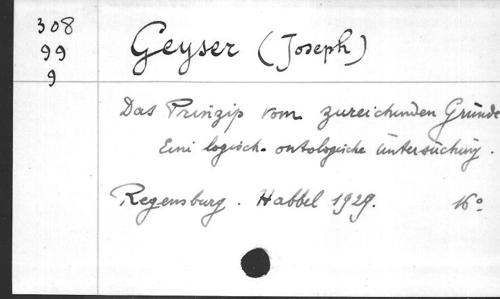 308
99
9
Geyser (Joseph)
Das Prinzip vom zureichenden Grunde
Eine logisch-ontologische Untersuchung.
Regensburg. Habbel 1929. 16°